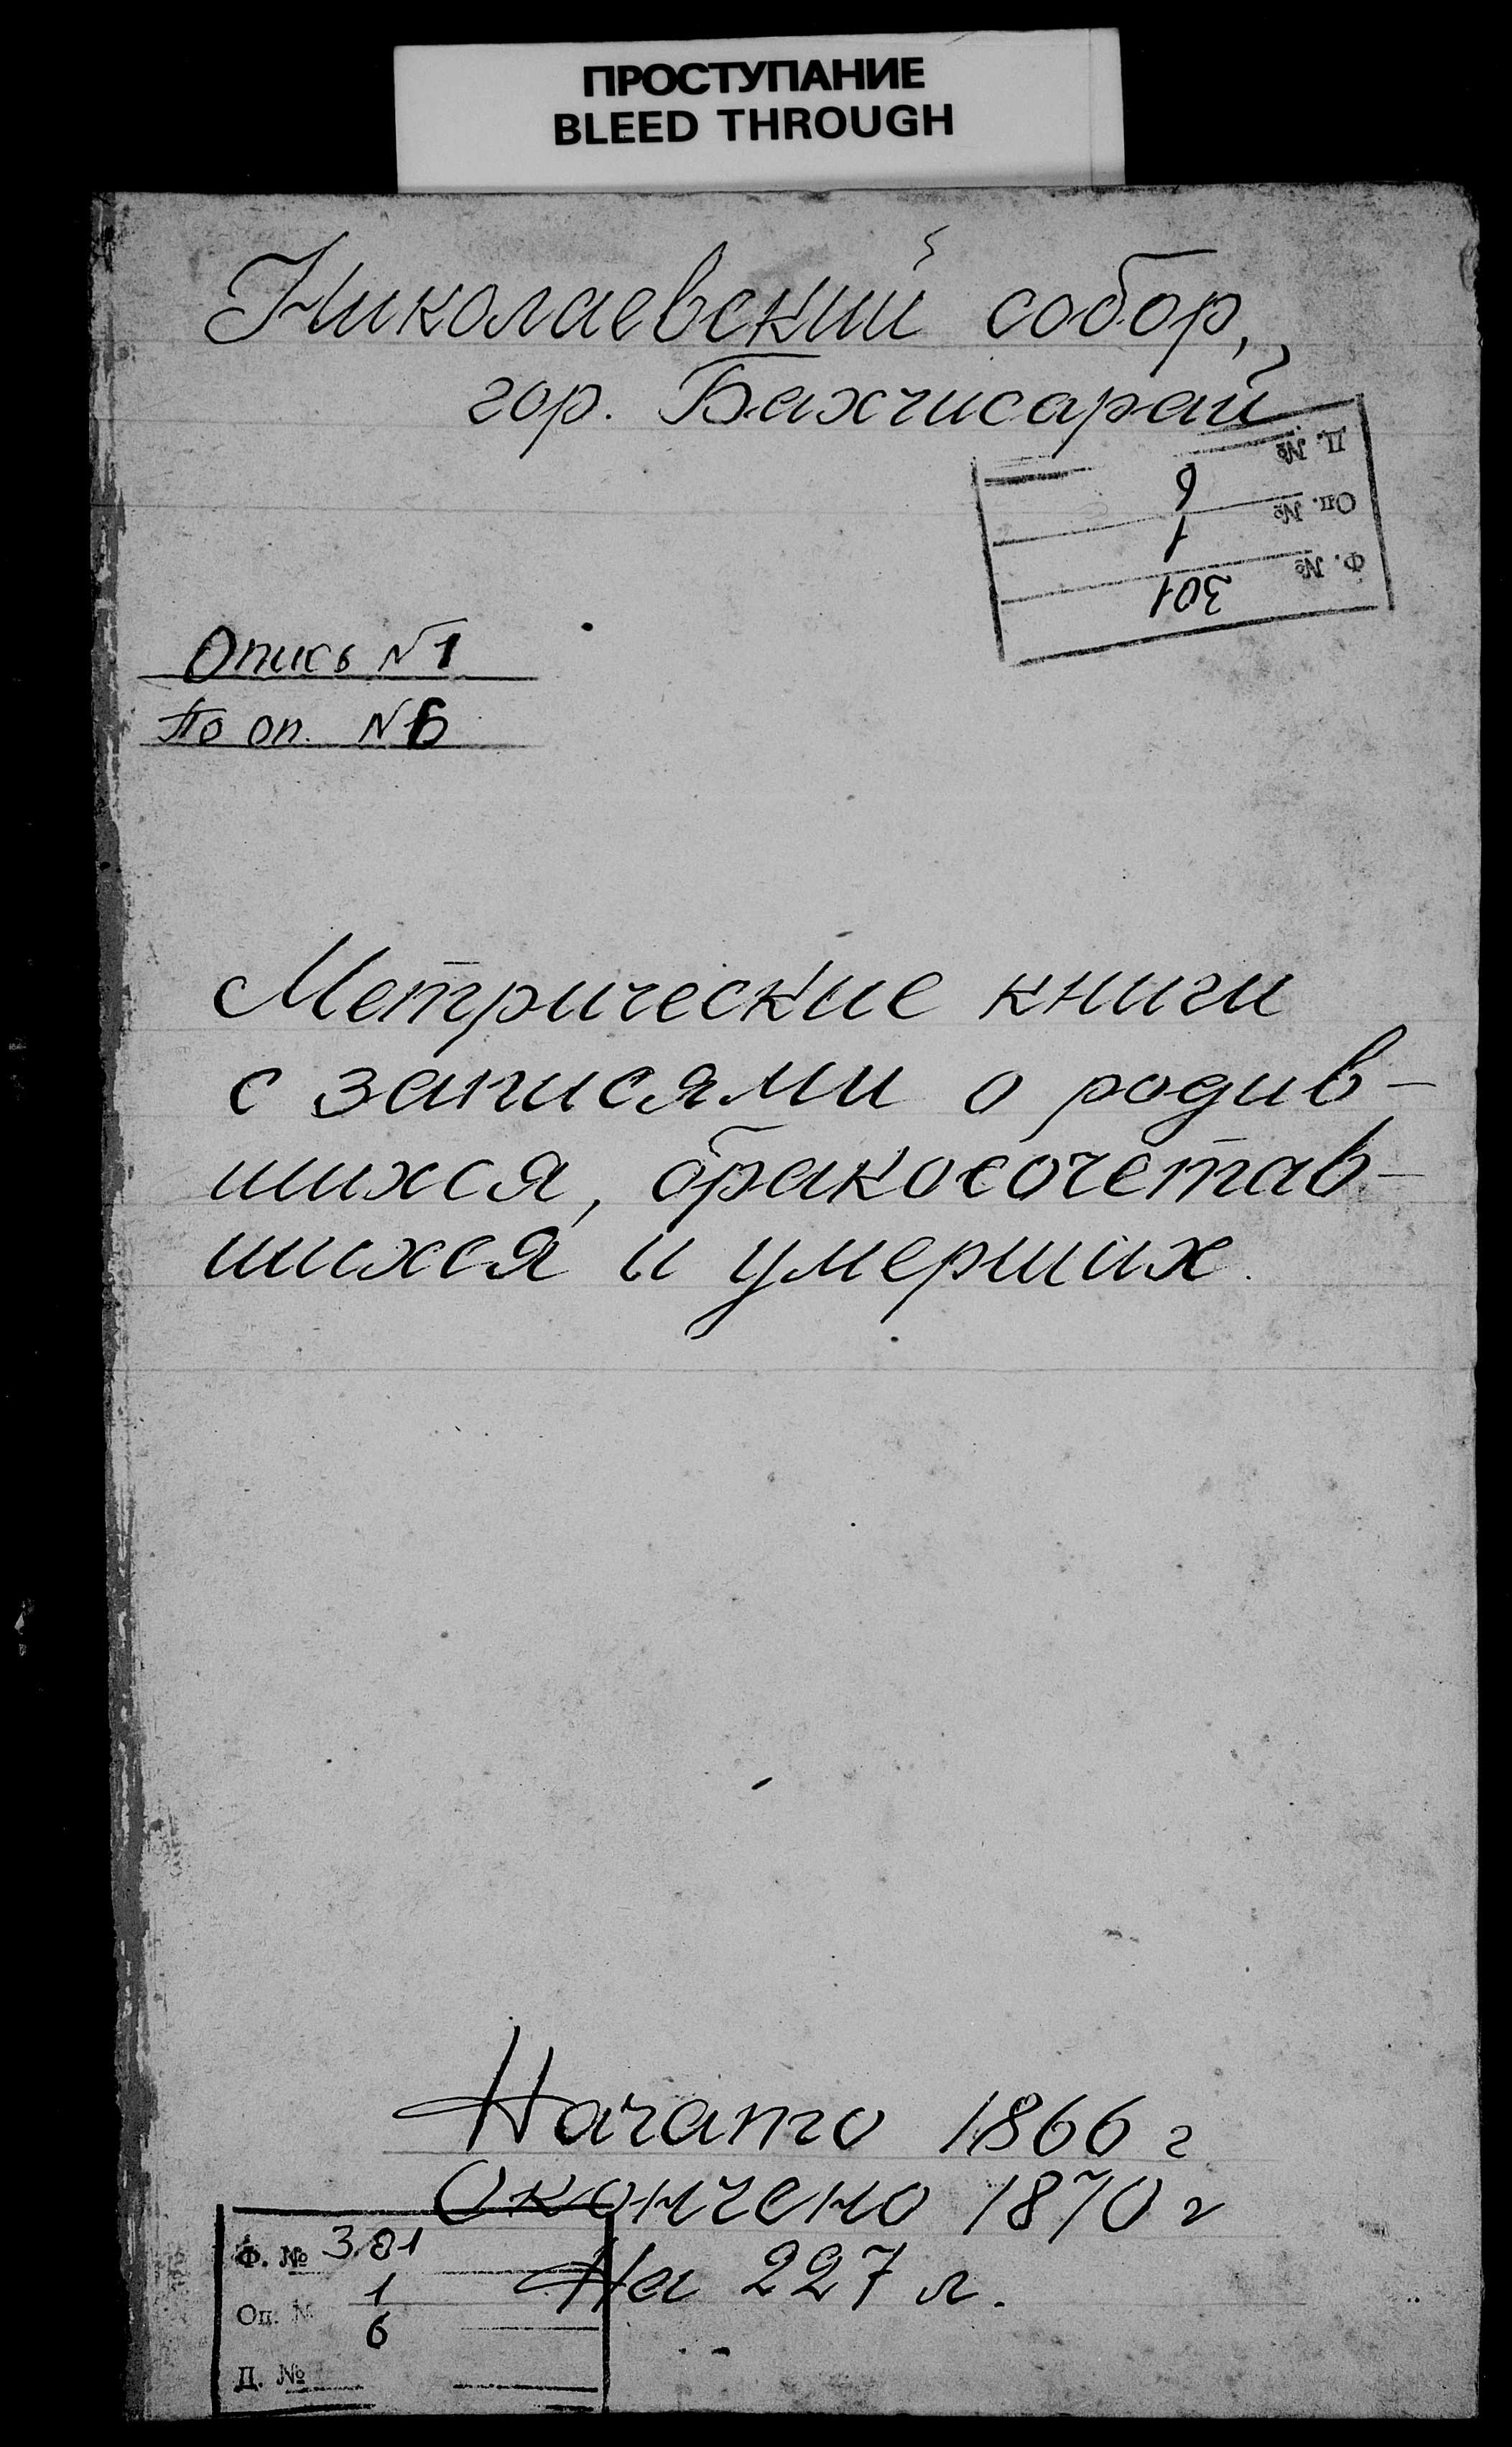 ПРОСТУПАНИЕ
BLEED THROUGH
Николаевский собор,
гор. Бахчисарай
Ф. № 301
Оп. № 1
Д. № 6
Опись №1
По оп. №6
Метрические книги
с записями о родив-
шихся, бракосочетав-
шихся и умерших.
Начато 1866 г
Окончено 1870 г
На 227 л.
Ф. № 301
Оп. № 1
Д. № 6